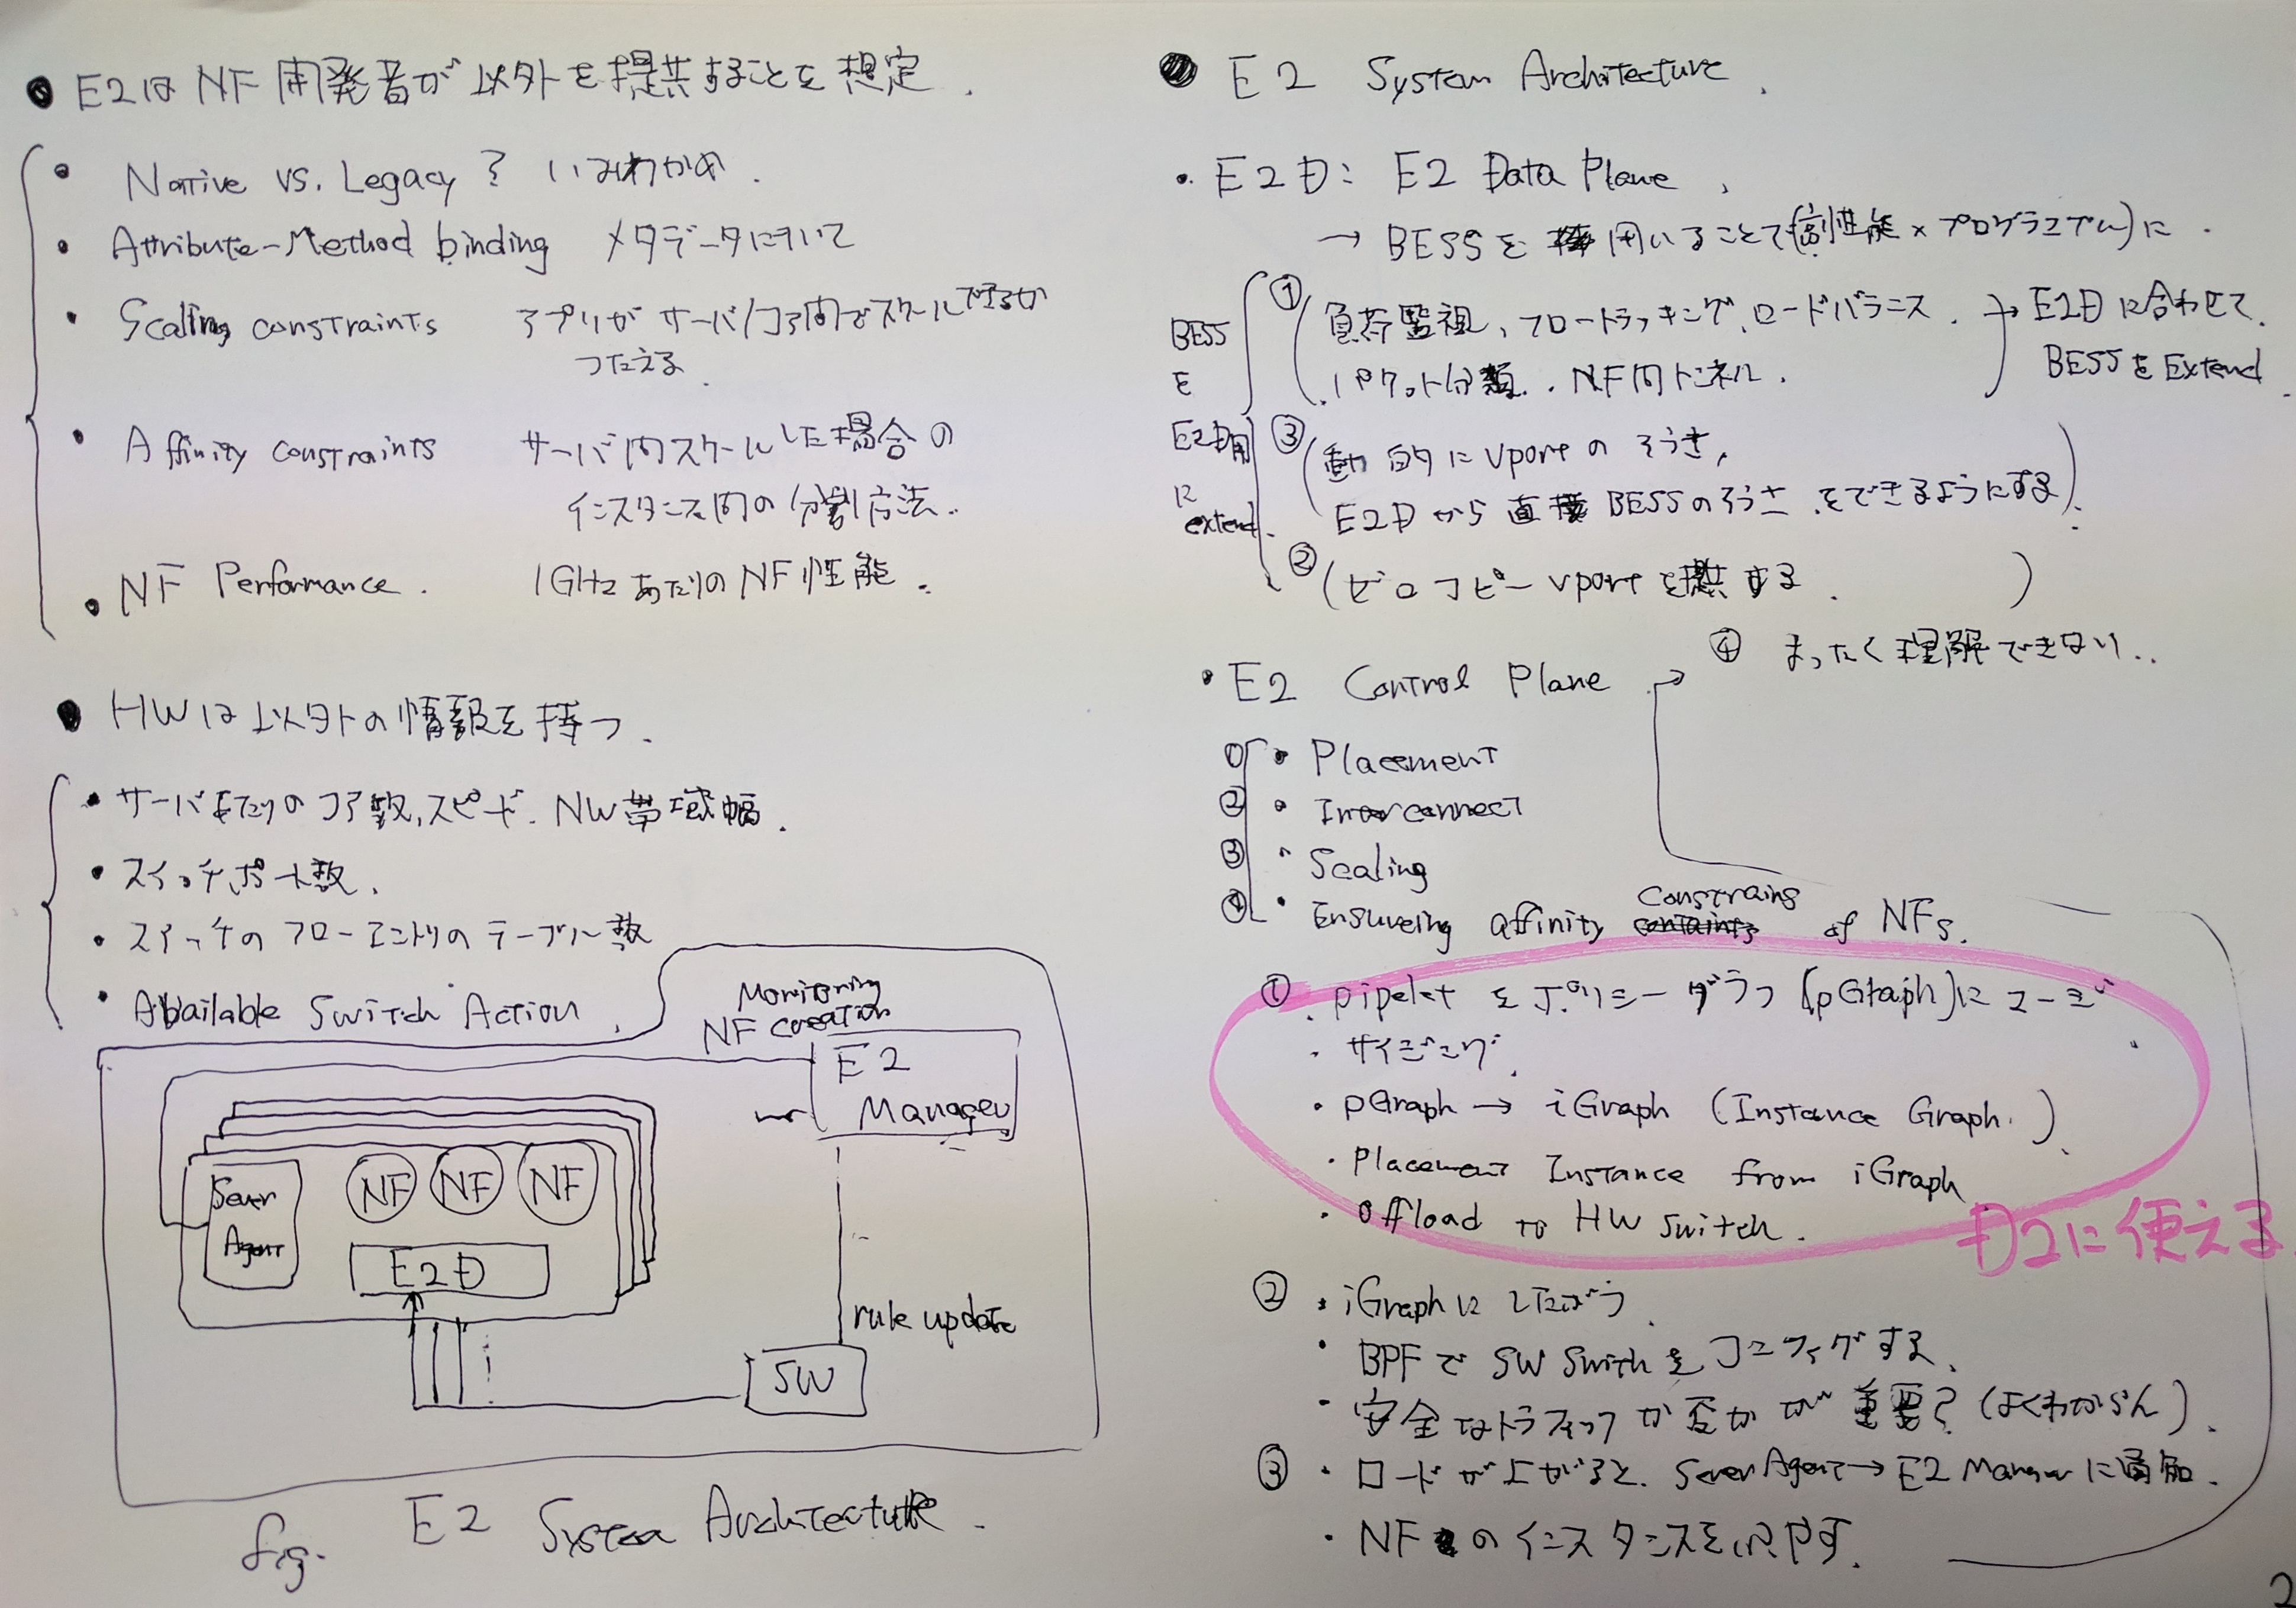 ● E2は NF 開発者が以外を提供することを想定.
・ Native vs. Legacy ? いみわかめ.
・ Attribute-Method binding メタデータについて
・ Scaling constraints アプリがサーバ/コア間でスケールできるか
つたえる.
・ Affinity constraints サーバ間スケールした場合の
インスタンス間の分割方法.
・ NF Performance. 1GHzあたりのNF性能.
● HWは以外の情報を持つ.
・ サーバあたりのコア数,スピード.NW帯域幅.
・ スイッチポート数.
・ スイッチのフローエントリのテーブル数
・ Abailable Switch Action.
Monitoring
NF creation
E2
Manager
Sever
Agent
NF NF NF
E2D
rule update
SW
fig. E2 System Architecture.
● E2 System Architecture.
・ E2D: E2 Data Plane,
→ BESSを用いることで(高性能×プログラマブル)に.
BESS
を
E2D用
に
extend.
① 負荷監視,フロートラッキング,ロードバランス.
パケット分類.. NF間トンネル.
→ E2Dに合わせて.
BESSをExtend.
③ (動的にvportのそうさ,
E2Dから直接BESSのそうさをできるようにする).
② (ゼロコピーvportを提供する. )
・ E2 Control Plane → ④ まったく理解できない..
① ・ Placement
② ・ Interconnect
③ ・ Scaling
④ ・ Ensureing affinity constrains of NFs.
① . pipelet をポリシーグラフ (pGraph)にマージ
・ サイジング.
・ pGraph → iGraph (Instance Graph.)
・ Placement Instance from iGraph
・ Offload to HW Switch.
D2に使える
② ・ iGraphにしたがう
・ BPFで SW Swithをコンフィグする.
・ 安全なトラフィックか否かが重要? (よくわからん).
③ ・ ロードが上がると. Sever Agent→E2 Managerに通知.
・ NFのインスタンスをふやす.
2